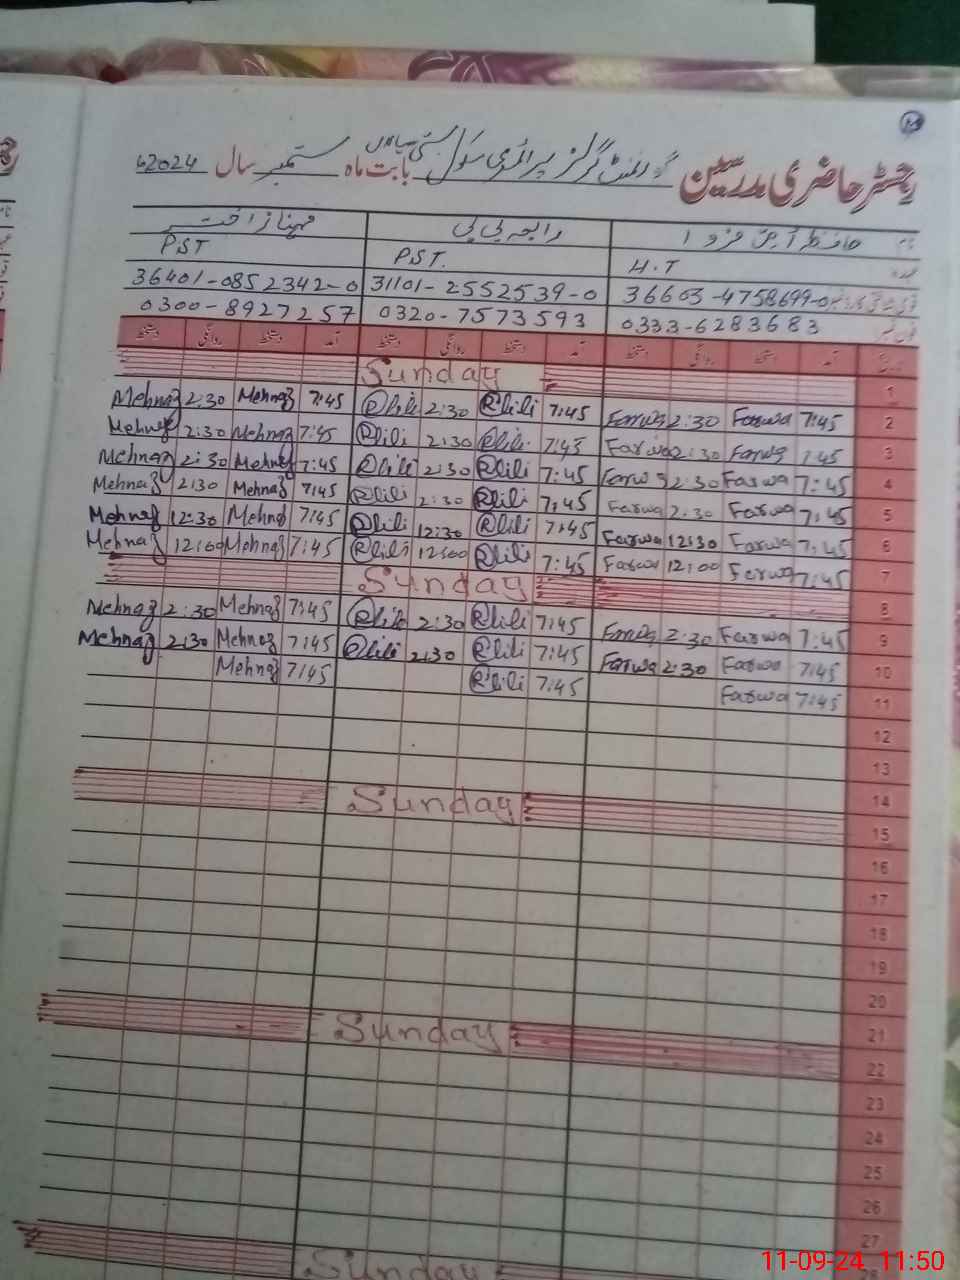 رجسٹر حاضری مدرسین گورنمنٹ گرلز پرائمری سکول بستی بابت ماہ ستمبر سال 2024ء
نام رابعہ بی بی مہناز اختر
عہدہ H.T PST. PST
36603-4758699-0 31101-2552539-0 36401-0852342-0
فون نمبر 0333-6283683 0320-7573593 0300-8927257
تاریخ آمد دستخط روانگی دستخط آمد دستخط روانگی دستخط آمد دستخط روانگی دستخط
1 Sunday
2 7:45 Farwa 2:30 Farwa 7:45 Rbibi 2:30 Rbibi 7:45 Mehnaz 2:30 Mehnaz
3 7:45 Farwa 2:30 Farwa 7:45 Rbibi 2:30 Rbibi 7:45 Mehnaz 2:30 Mehnaz
4 7:45 Farwa 2:30 Farwa 7:45 Rbibi 2:30 Rbibi 7:45 Mehnaz 2:30 Mehnaz
5 7:45 Farwa 2:30 Farwa 7:45 Rbibi 2:30 Rbibi 7:45 Mehnaz 2:30 Mehnaz
6 7:45 Farwa 12:30 Farwa 7:45 Rbibi 12:30 Rbibi 7:45 Mehnaz 12:30 Mehnaz
7 7:45 Farwa 12:00 Farwa 7:45 Rbibi 12:00 Rbibi 7:45 Mehnaz 12:00 Mehnaz
8 Sunday
9 7:45 Farwa 2:30 Farwa 7:45 Rbibi 2:30 Rbibi 7:45 Mehnaz 2:30 Mehnaz
10 7:45 Farwa 2:30 Farwa 7:45 Rbibi 2:30 Rbibi 7:45 Mehnaz 2:30 Mehnaz
11 7:45 Farwa 7:45 Rbibi 7:45 Mehnaz
12
13
14
15 Sunday
16
17
18
19
20
21
22 Sunday
23
24
25
26
27
28
Sunday
11-09-24 11:50